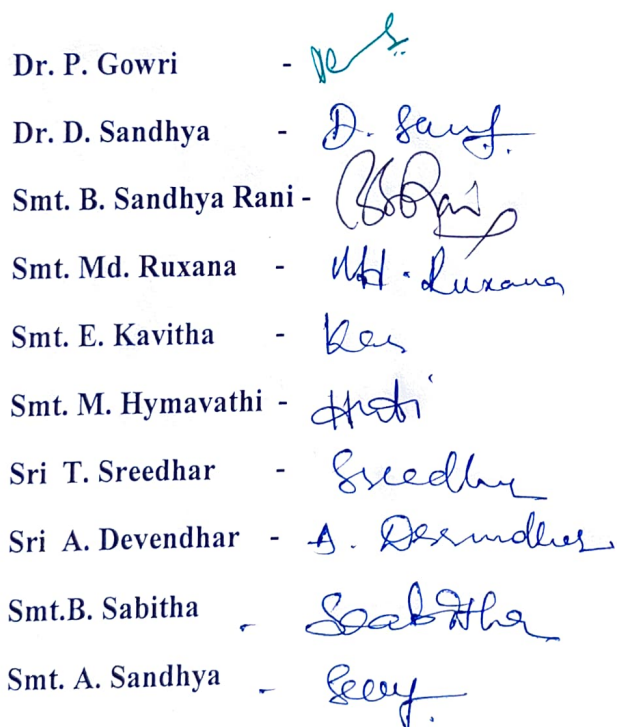 Dr. P. Gowri -
Dr. D. Sandhya - D.
Smt. B. Sandhya Rani - BSRani
Smt. Md. Ruxana - Md. Ruxana
Smt. E. Kavitha -
Smt. M. Hymavathi -
Sri T. Sreedhar - Sreedhar
Sri A. Devendhar - A. Devendhar
Smt.B. Sabitha - Sabitha
Smt. A. Sandhya -